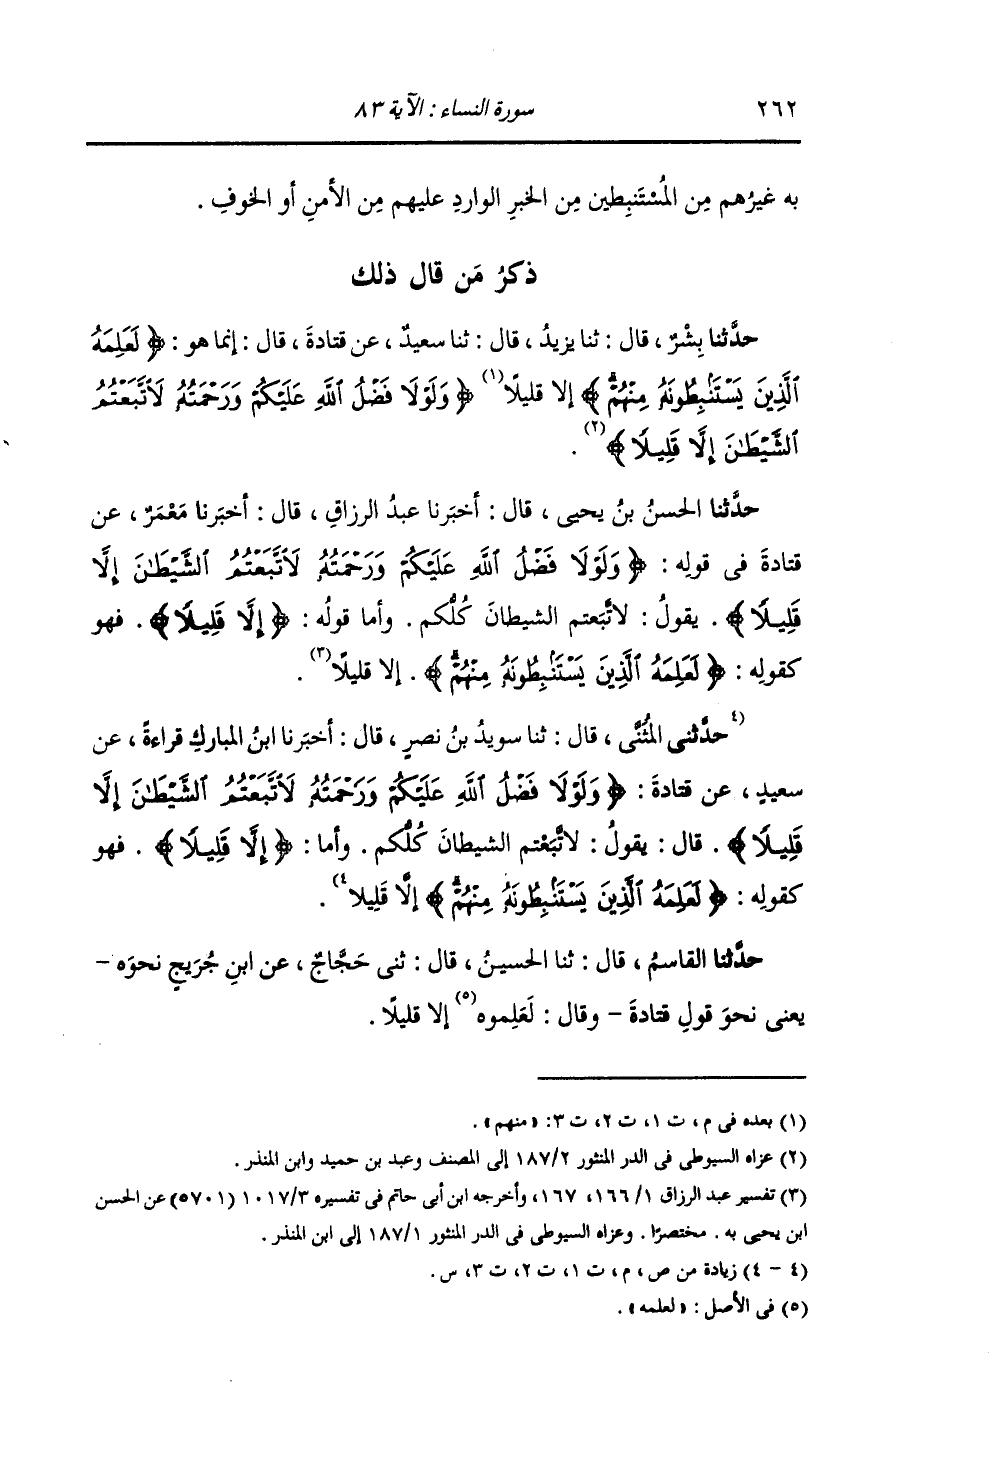 ٢٦٢ سورة النساء : الآية ٨٣
به غيرُهم مِن المُسْتَنبِطين مِن الخبرِ الواردِ عليهم مِن الأمنِ أو الخوفِ .
ذكرُ مَن قال ذلك
حدَّثنا بِشْرٌ ، قال : ثنا يزيدُ ، قال : ثنا سعيدٌ ، عن قتادةَ ، قال : إنما هو : ﴿ لَعَلِمَهُ
ٱلَّذِينَ يَسْتَنۢبِطُونَهُۥ مِنْهُمْۗ ﴾ إلا قليلًا(١) ﴿ وَلَوْلَا فَضْلُ ٱللَّهِ عَلَيْكُمْ وَرَحْمَتُهُۥ لَٱتَّبَعْتُمُ
ٱلشَّيْطَٰنَ إِلَّا قَلِيلًا ﴾(٢) .
حدَّثنا الحسنُ بنُ يحيى ، قال : أخبَرنا عبدُ الرزاقِ ، قال : أخبَرنا مَعْمَرٌ ، عن
قتادةَ فى قولِه : ﴿ وَلَوْلَا فَضْلُ ٱللَّهِ عَلَيْكُمْ وَرَحْمَتُهُۥ لَٱتَّبَعْتُمُ ٱلشَّيْطَٰنَ إِلَّا
قَلِيلًا ﴾ . يقولُ : لاتَّبَعتم الشيطانَ كُلُّكم . وأما قولُه : ﴿ إِلَّا قَلِيلًا ﴾ . فهو
كقولِه : ﴿ لَعَلِمَهُ ٱلَّذِينَ يَسْتَنۢبِطُونَهُۥ مِنْهُمْۗ ﴾ . إلا قليلًا(٣) .
(٤حدَّثنى المُثَنَّى ، قال : ثنا سويدُ بنُ نصرٍ ، قال : أخبَرنا ابنُ المباركِ قراءةً ، عن
سعيدٍ ، عن قتادةَ : ﴿ وَلَوْلَا فَضْلُ ٱللَّهِ عَلَيْكُمْ وَرَحْمَتُهُۥ لَٱتَّبَعْتُمُ ٱلشَّيْطَٰنَ إِلَّا
قَلِيلًا ﴾ . قال : يقولُ : لاتَّبَعْتم الشيطانَ كُلُّكم . وأما : ﴿ إِلَّا قَلِيلًا ﴾ . فهو
كقولِه : ﴿ لَعَلِمَهُ ٱلَّذِينَ يَسْتَنۢبِطُونَهُۥ مِنْهُمْۗ ﴾ إلَّا قَلِيلا٤) .
حدَّثنا القاسمُ ، قال : ثنا الحسينُ ، قال : ثنى حَجَّاجٌ ، عن ابنِ جُرَيجٍ نحوَه –
يعنى نحوَ قولِ قتادةَ – وقال : لَعَلِموه(٥) إلا قليلًا .
(١) بعده فى م ، ت ١، ت ٢، ت ٣: « منهم » .
(٢) عزاه السيوطى فى الدر المنثور ١٨٧/٢ إلى المصنف وعبد بن حميد وابن المنذر .
(٣) تفسير عبد الرزاق ١/ ١٦٦، ١٦٧، وأخرجه ابن أبى حاتم فى تفسيره ١٠١٧/٣ (٥٧٠١) عن الحسن
ابن يحيى به . مختصرًا . وعزاه السيوطى فى الدر المنثور ١٨٧/١ إلى ابن المنذر .
(٤ - ٤) زيادة من ص ، م ، ت ١، ت ٢، ت ٣، س .
(٥) فى الأصل : « لعلمه » .